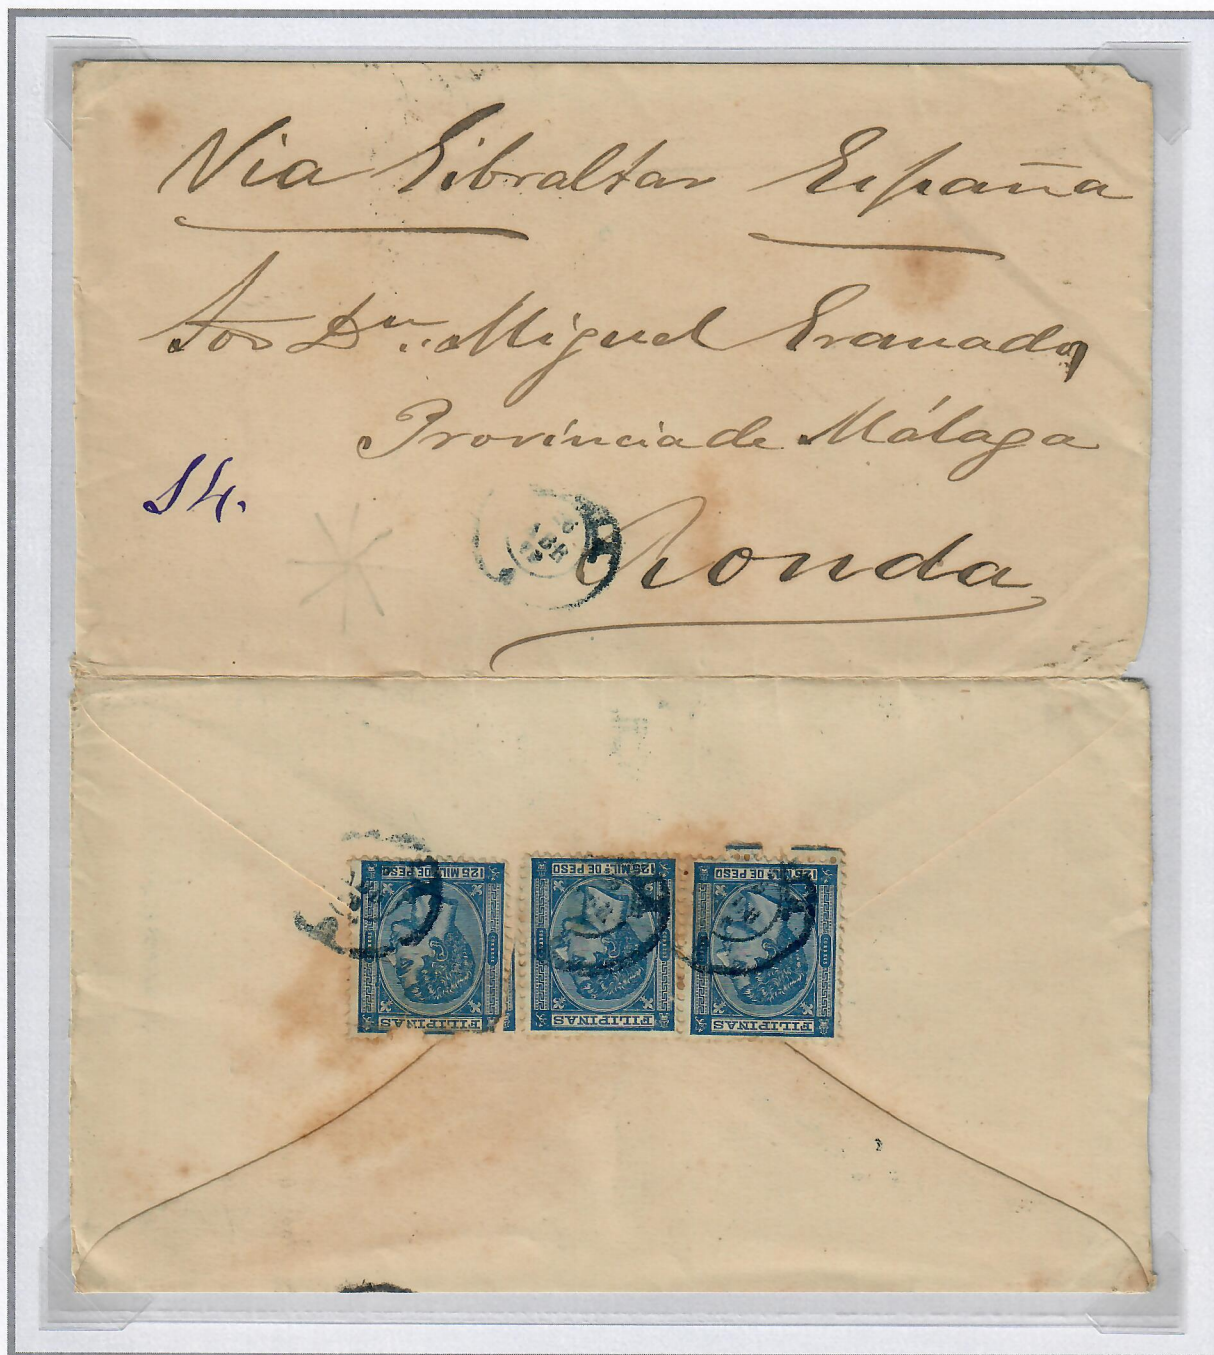 Via Gibraltar España
Sor Dn. Miguel Granados
Provincia de Málaga
14.
Ronda
125 MILS. DE PESO
125 MILS. DE PESO
125 MILS. DE PESO
FILIPINAS
FILIPINAS
FILIPINAS